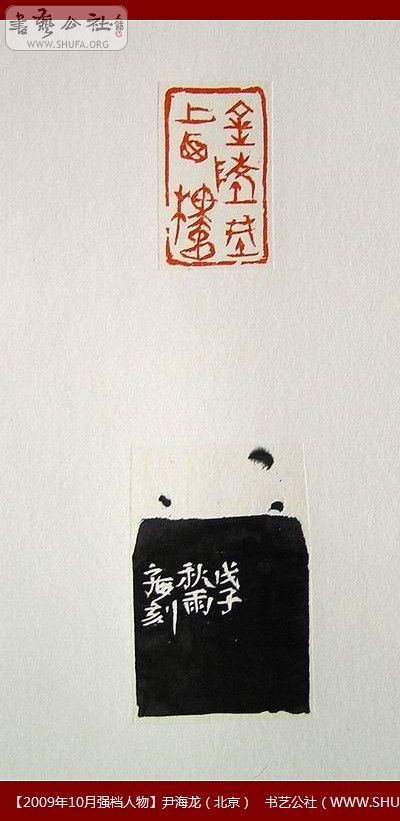 書藝公社
WWW.SHUFA.ORG
金陵
上樓
戊子
秋雨
海刻
【2009年10月强档人物】尹海龙（北京） 书艺公社（WWW.SHU